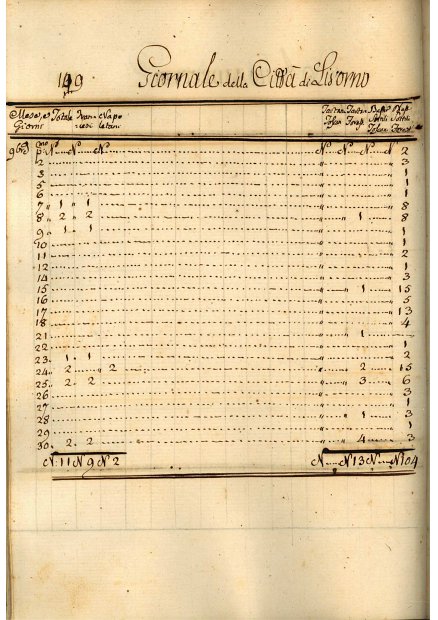 149 Giornale della Città di Livorno
Mese, e Totale Fran= Napo
Giorni cesi letani
Tosca Forest
9bre pmo N N N N N N N 2
2 3
3 1
5 1
6 1
7 1 1 8
8 2 2 1 8
9 1 1 1
10 1
11 2
12 1
14 3
15 1 15
16 5
17 13
18 4
21 1 1
22 1
23 1 1 2
24 2 2 2 15
25 2 2 3 6
26 3
27 1
28 1 3
29 1
30 2 2 4 3
N. 11 N 9 N 2 N N 13 N N 104